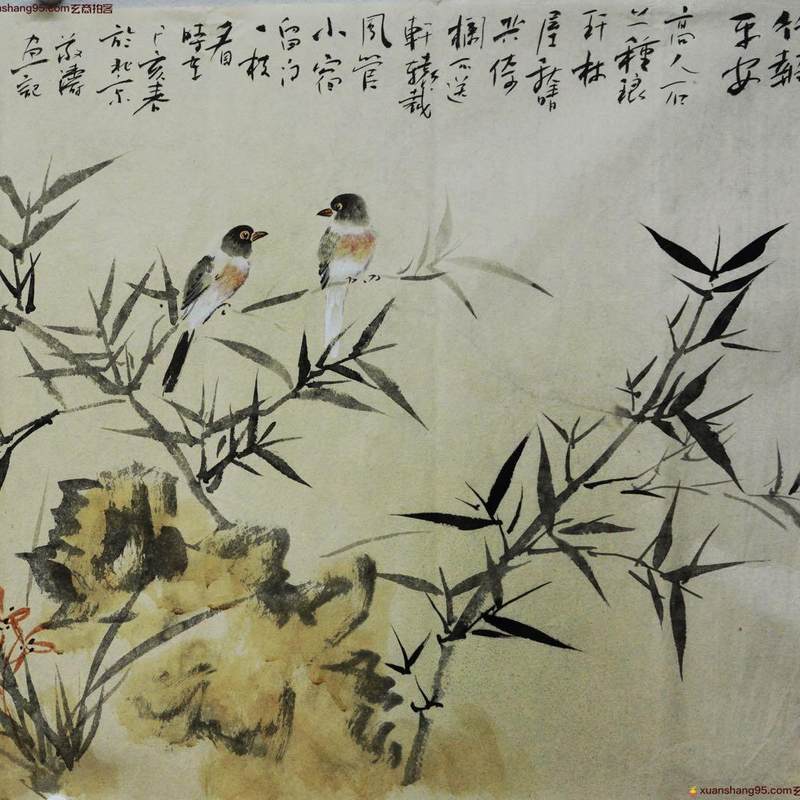 anshang95.com玄商拍客
竹報
平安
高人石
上種琅
玕村
屋秋晴
共倚
欄不送
軒轅裁
鳳管
小窗
留得
一枝
看
時在
丁亥春
於北京
敬濤
畫記
xuanshang95.com玄